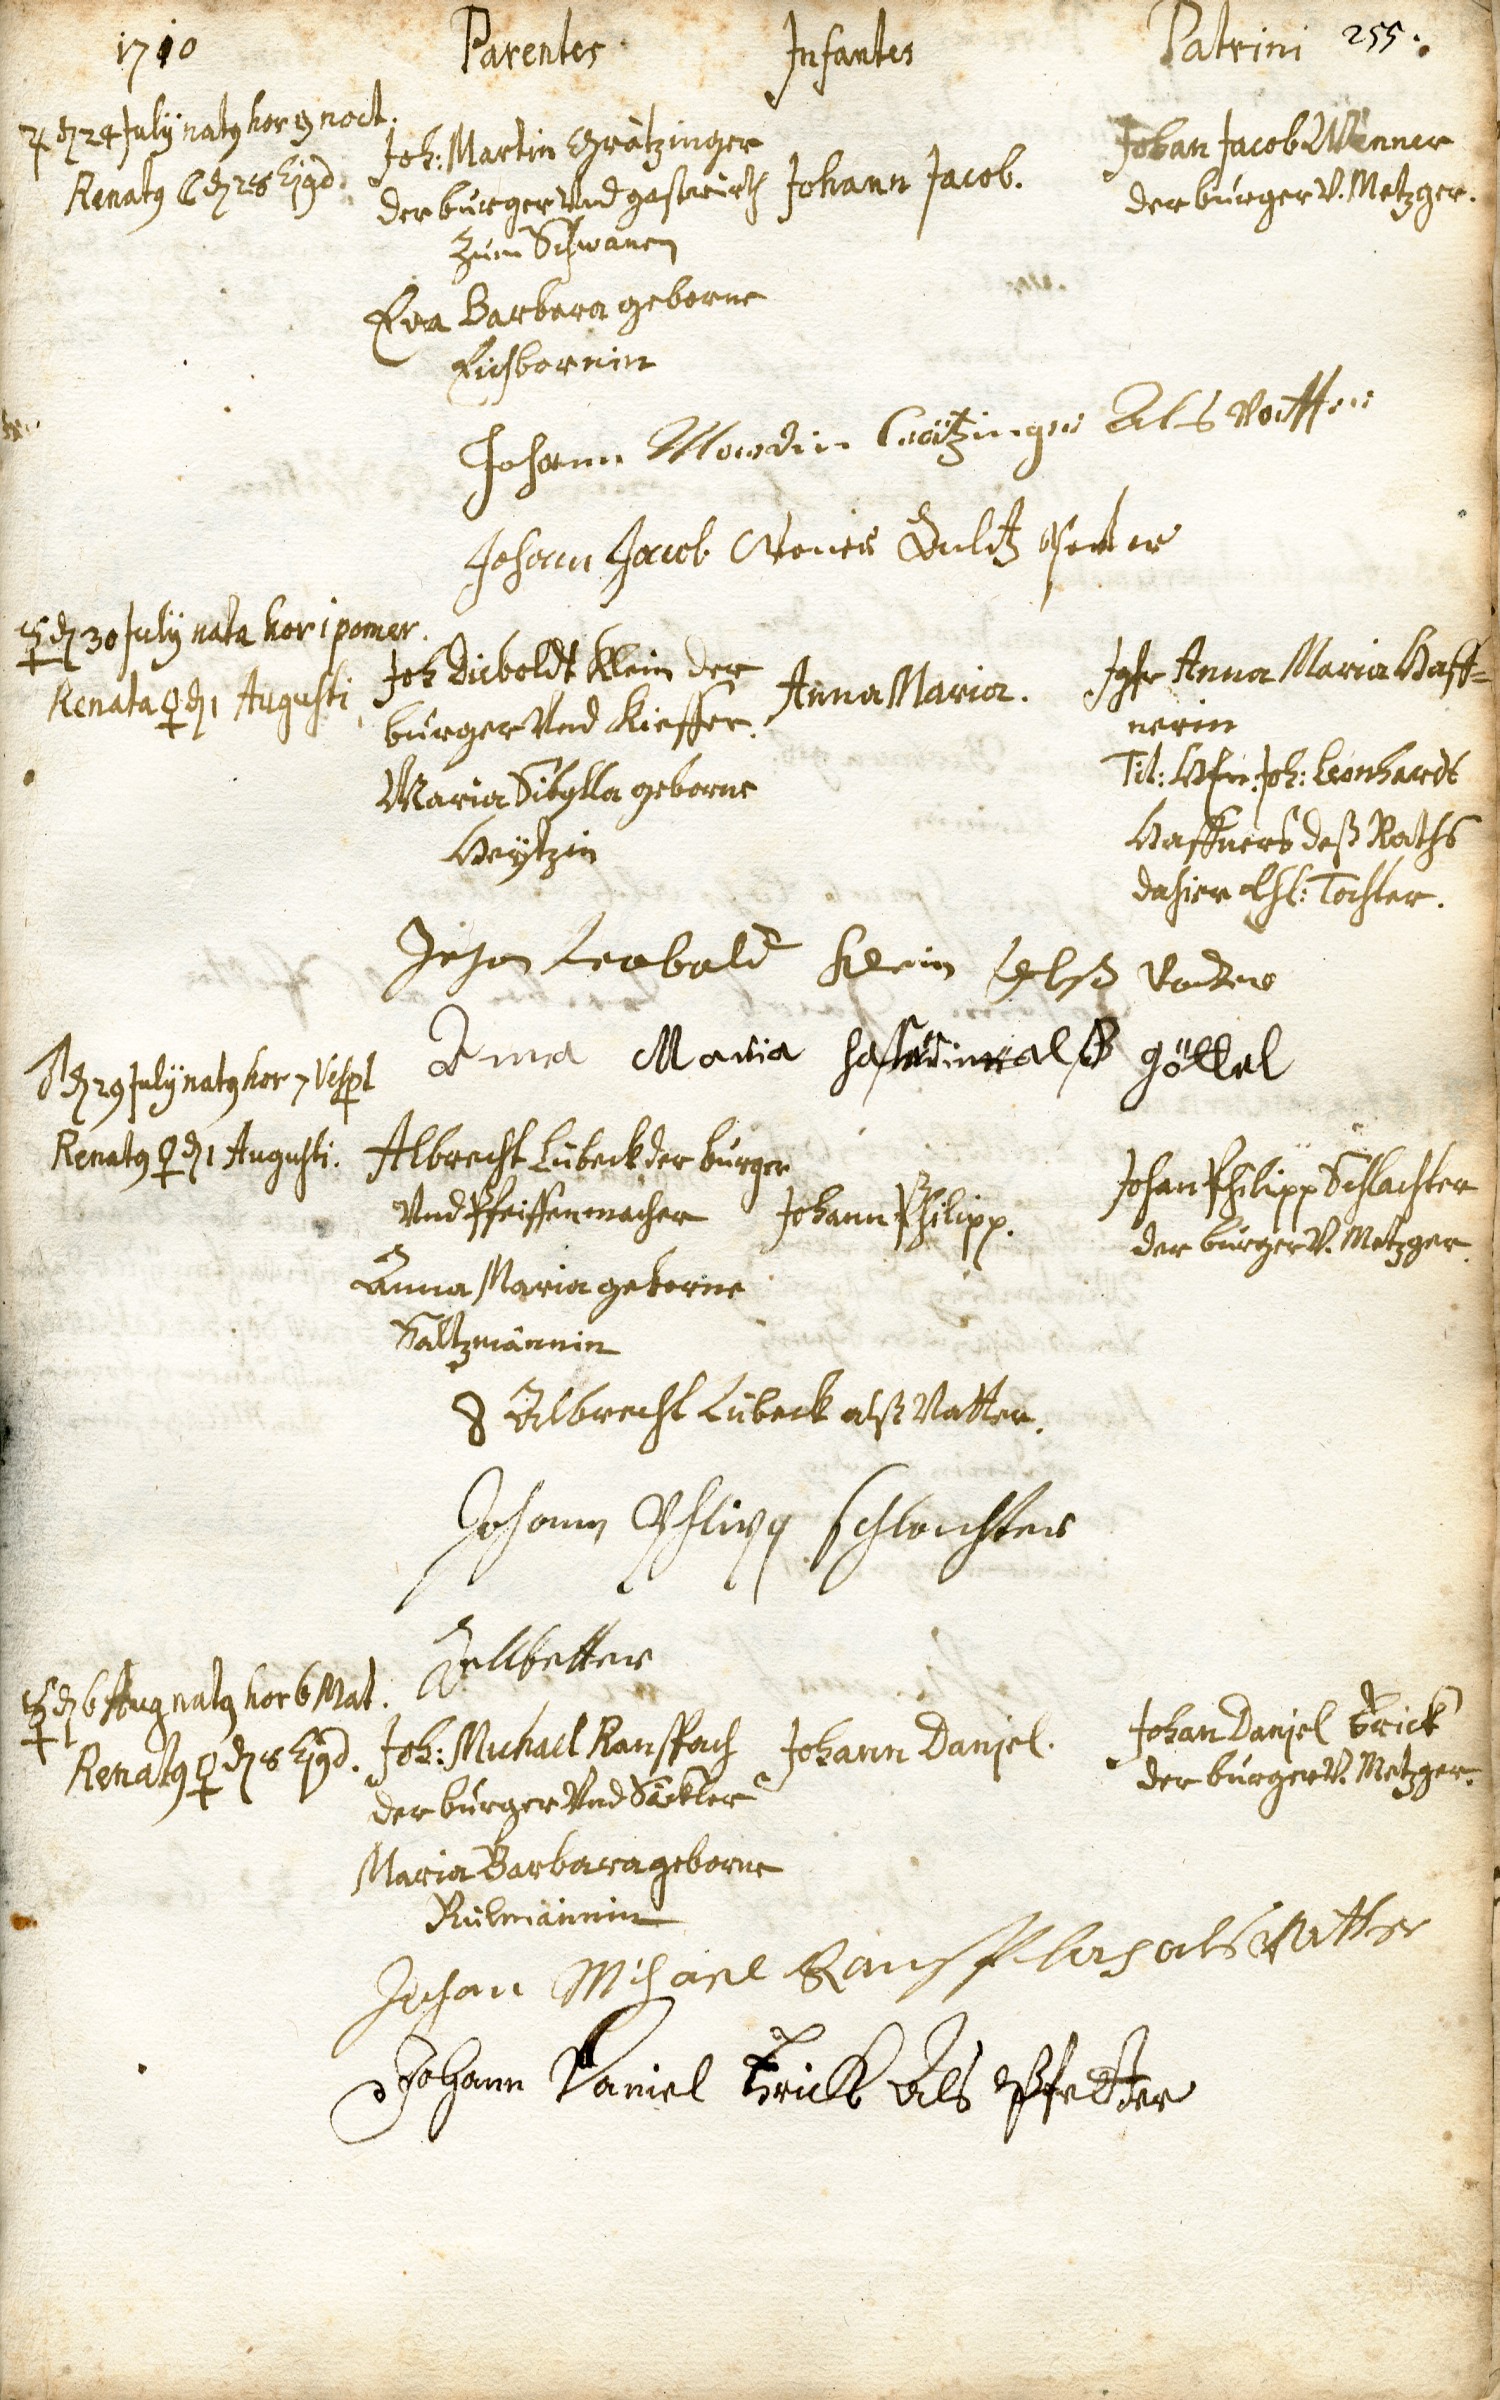 1710 Parentes Infantes Patrini 255.
♃ d. 24 July natq hor 9 noct.
Renatq ☾ d. 28 Ejqd.
Joh: Martin Grätzinger
der burger Vnd gastwürth
Zum Schwanen
Eva Barbara geborne
Eichbornin
Johann Jacob.
Johan Jacob Wenner
der burger V. Metzger.
Johann Mardin Crätzinger Als Vatter
Johann Jacob
☿ d. 30 July nata hor 1 pomer.
Renata ♀ d. 1 Augusti
Joh Dieboldt Klein der
burger Vnd Kieffer.
Maria Sibylla geborne
Heÿtzin
Anna Maria.
Jgfr Anna Maria Haff=
nerin
Tit: Hhn: Joh: Leonhardt
Haffners deß Raths
dahier ehl: Tochter.
Johan Klein Vatter
Anna Maria alß göttel
♂ d. 29 July natq hor 7 Vespt
Renatq ♀ d. 1 Augusti.
Albrecht Lübeck der burger
Vnd Pfeiffenmacher
Anna Maria geborne
Saltzmännin
Johann Philipp.
Johan Philipp Schlachter
der burger V. Metzger.
Albrecht Lübeck alß Vatter.
Johann Phlipp schlachter
☿ d. 6 Aug natq hor 6 Mat.
Renatq ♀ d. 8 Ejqd.
Joh: Michael Ranspach
der burger Vnd Säckler
Maria Barbara geborne
Rülmännin
Johann Daniel.
Johan Daniel Frick
der burger V. Metzger.
Johan Michael als Vatter
Johann Daniel Frick Als Pfetter